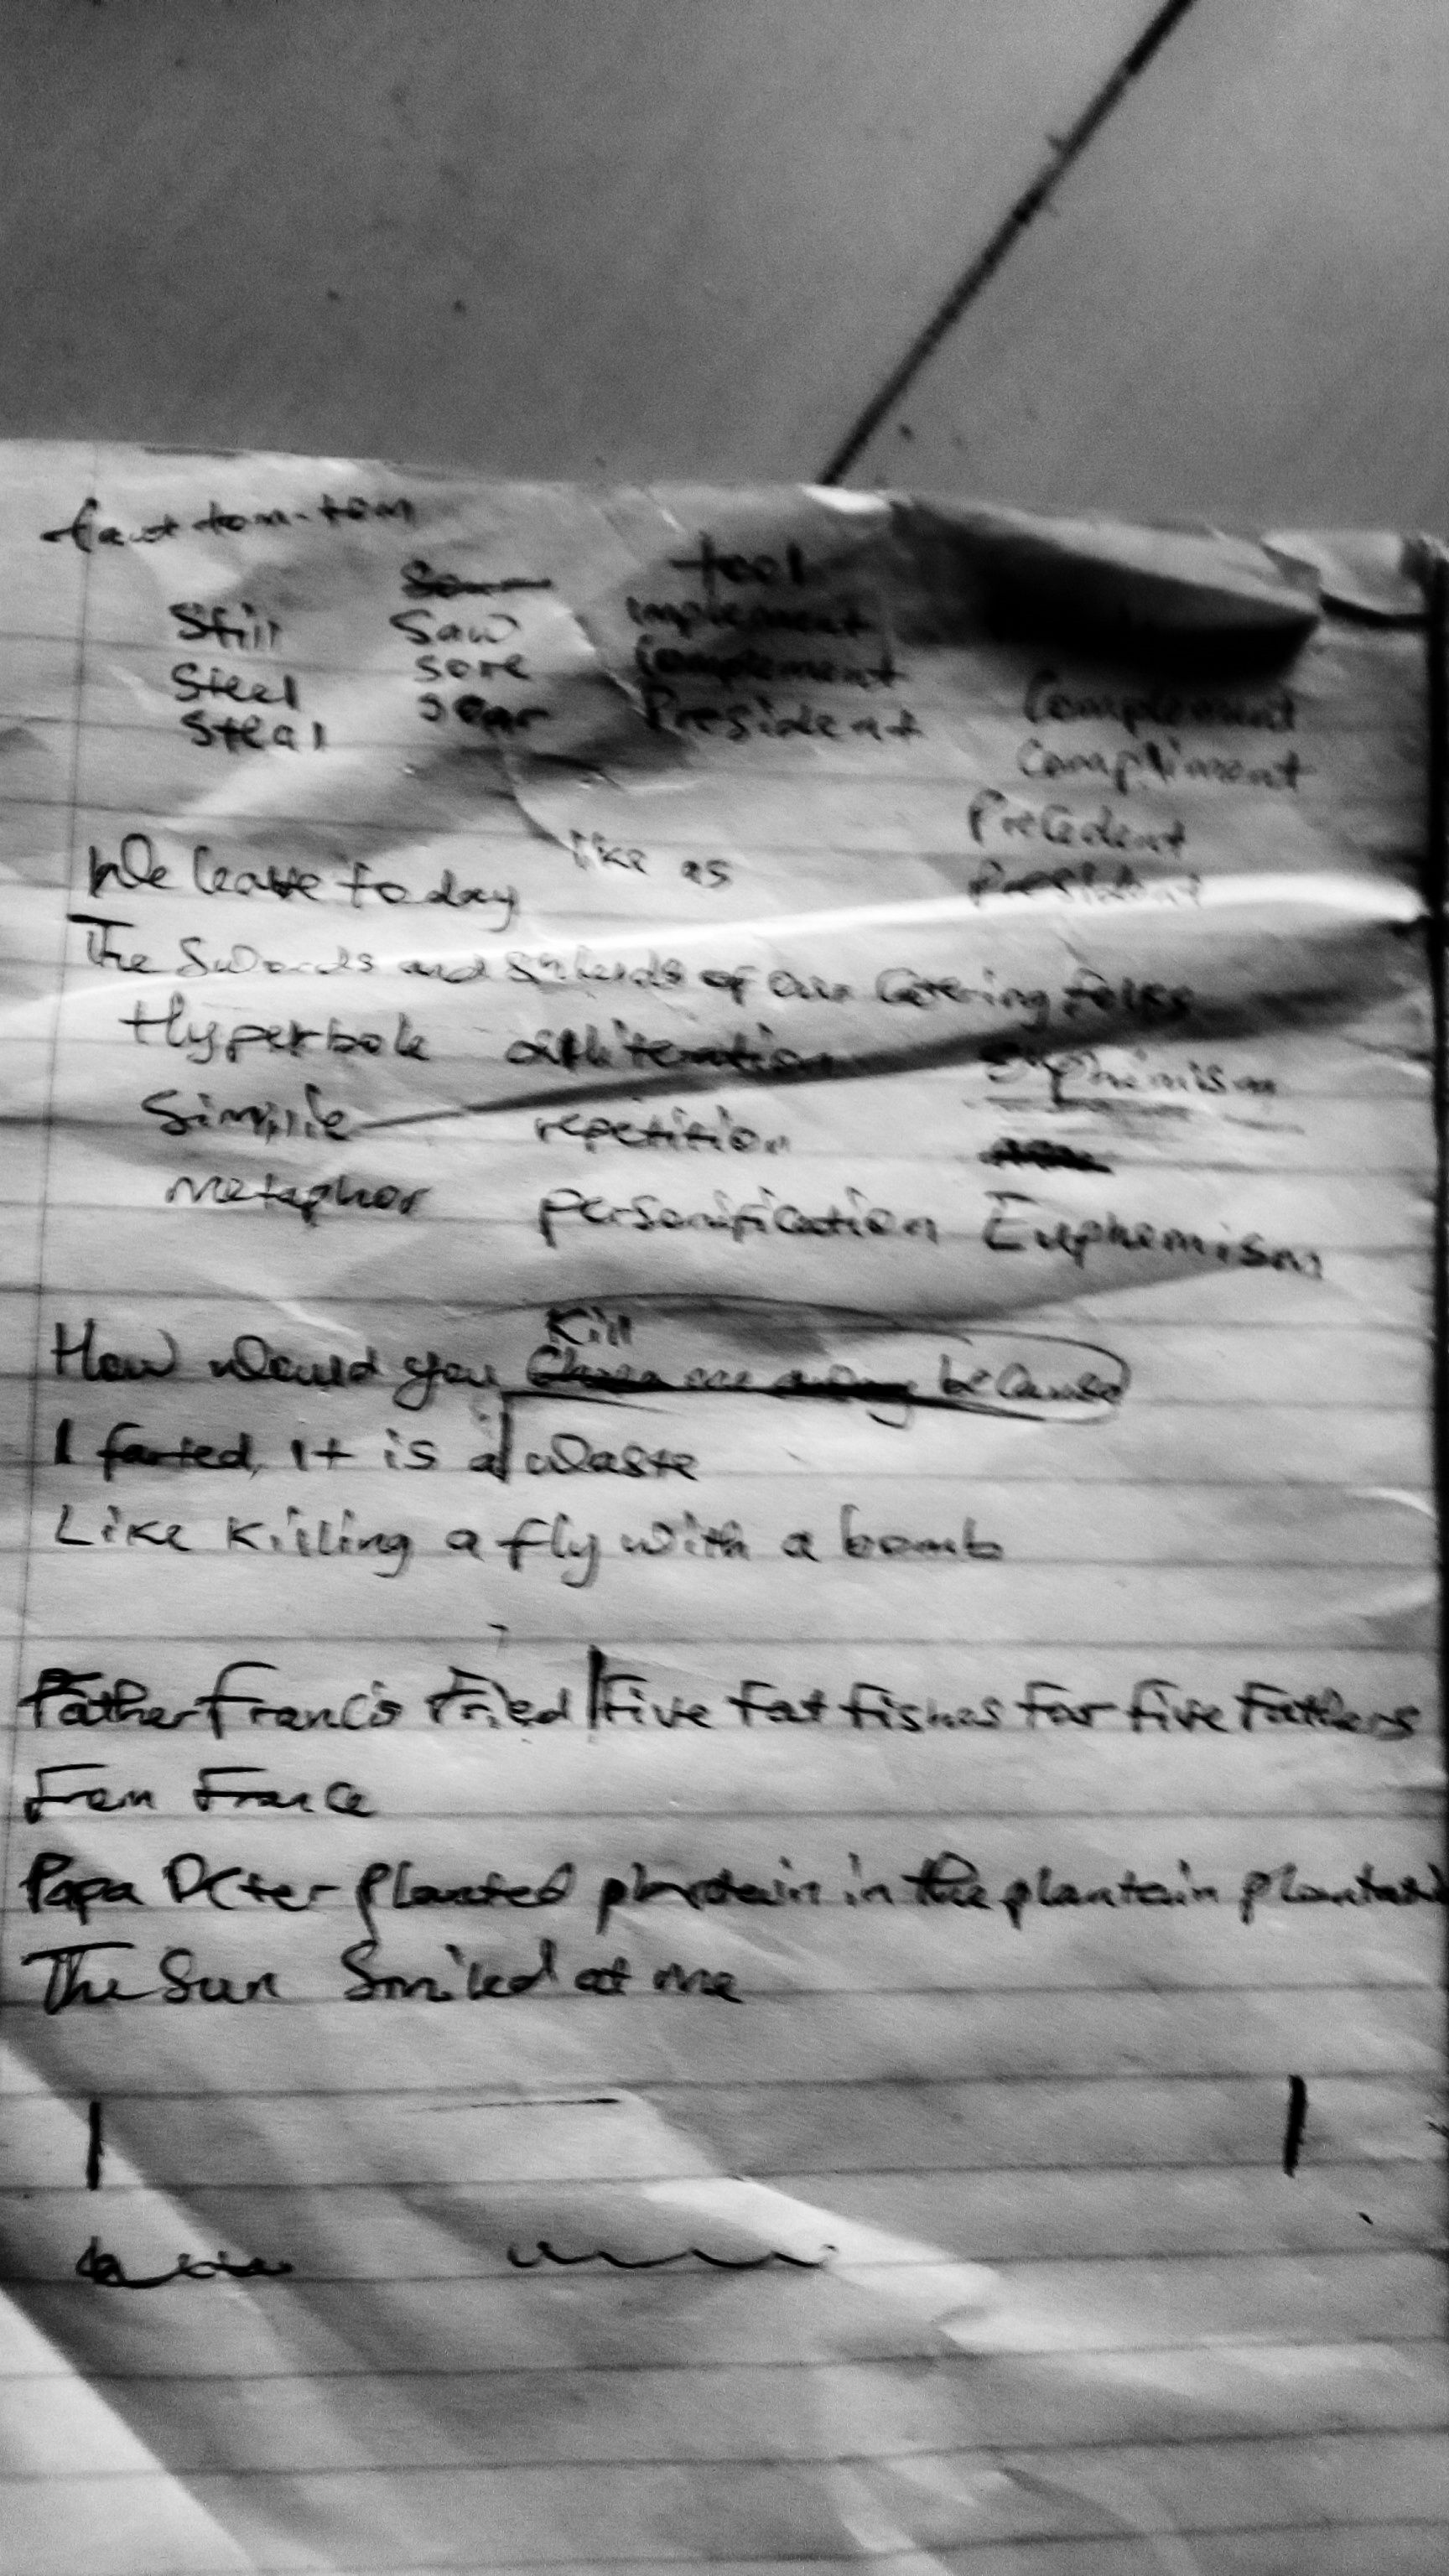 tool
Still Saw implement
Steel sore Complement
Steal soar President Complement
Compliment
Precedent
President
We leave today like as
The Swords and of our Catering folks
Hyperbole alliteration euphimism
Simile repetition
Metaphor personification Euphemism
Kill
How would you because
I farted, it is a waste
Like Killing a fly with a bomb
Father Francis Fried five fat fishes for five Fathers
From France
Papa Peter planted plantain in the plantain
The Sun Smiled at me